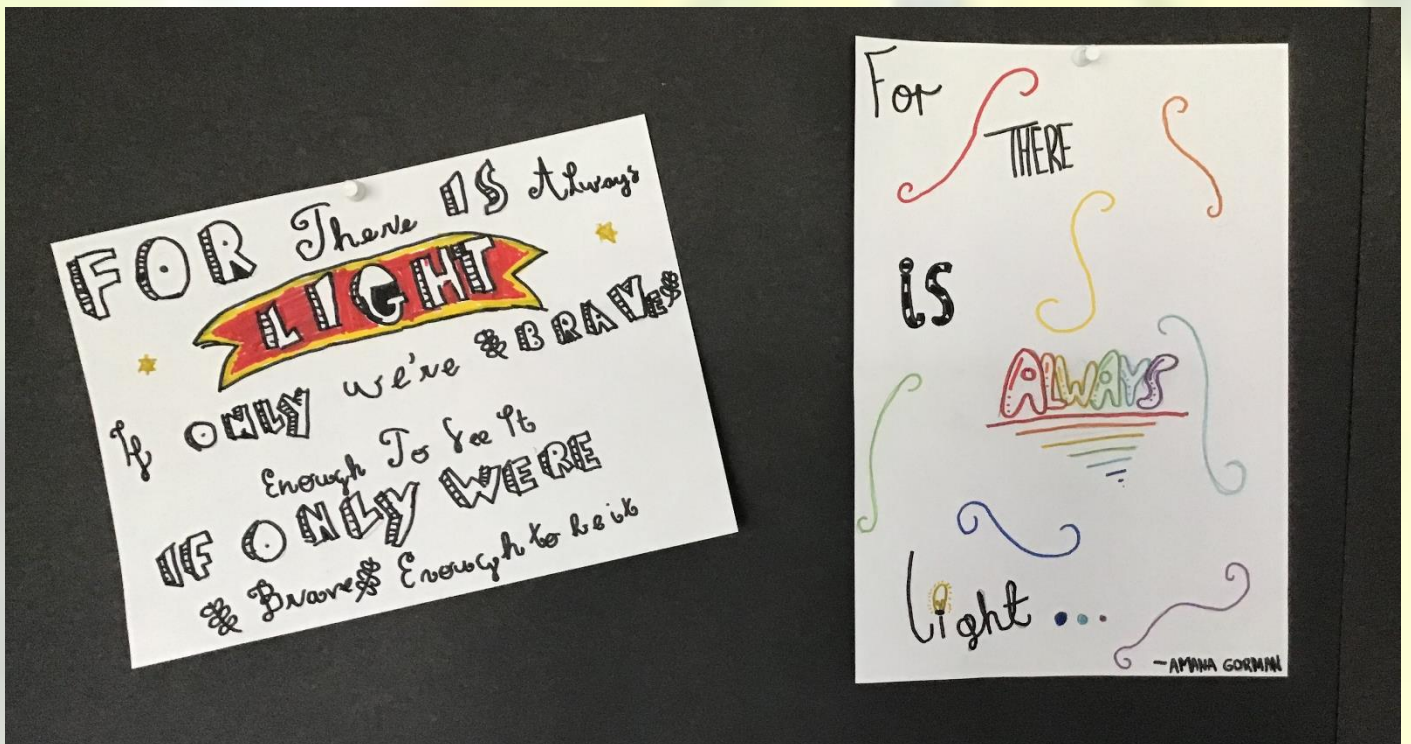 FOR There IS Always
LIGHT
If ONLY we're BRAVE
Enough To See It
IF ONLY WERE
Brave Enough to be it
For
THERE
is
ALWAYS
light...
-AMANA GORMAN